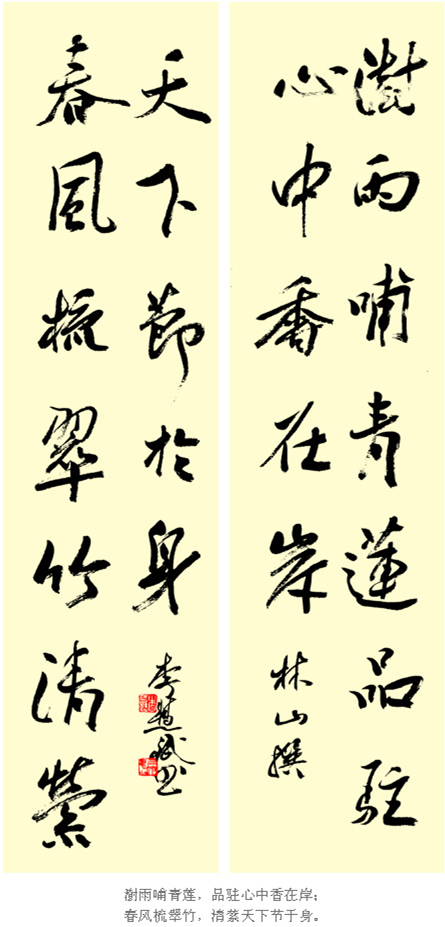 澍雨哺青蓮品駐
心中香在岸
林山撰
春風梳翠竹清縈
天下節於身
李慧斌书
澍雨哺青莲，品驻心中香在岸；
春风梳翠竹，清萦天下节于身。